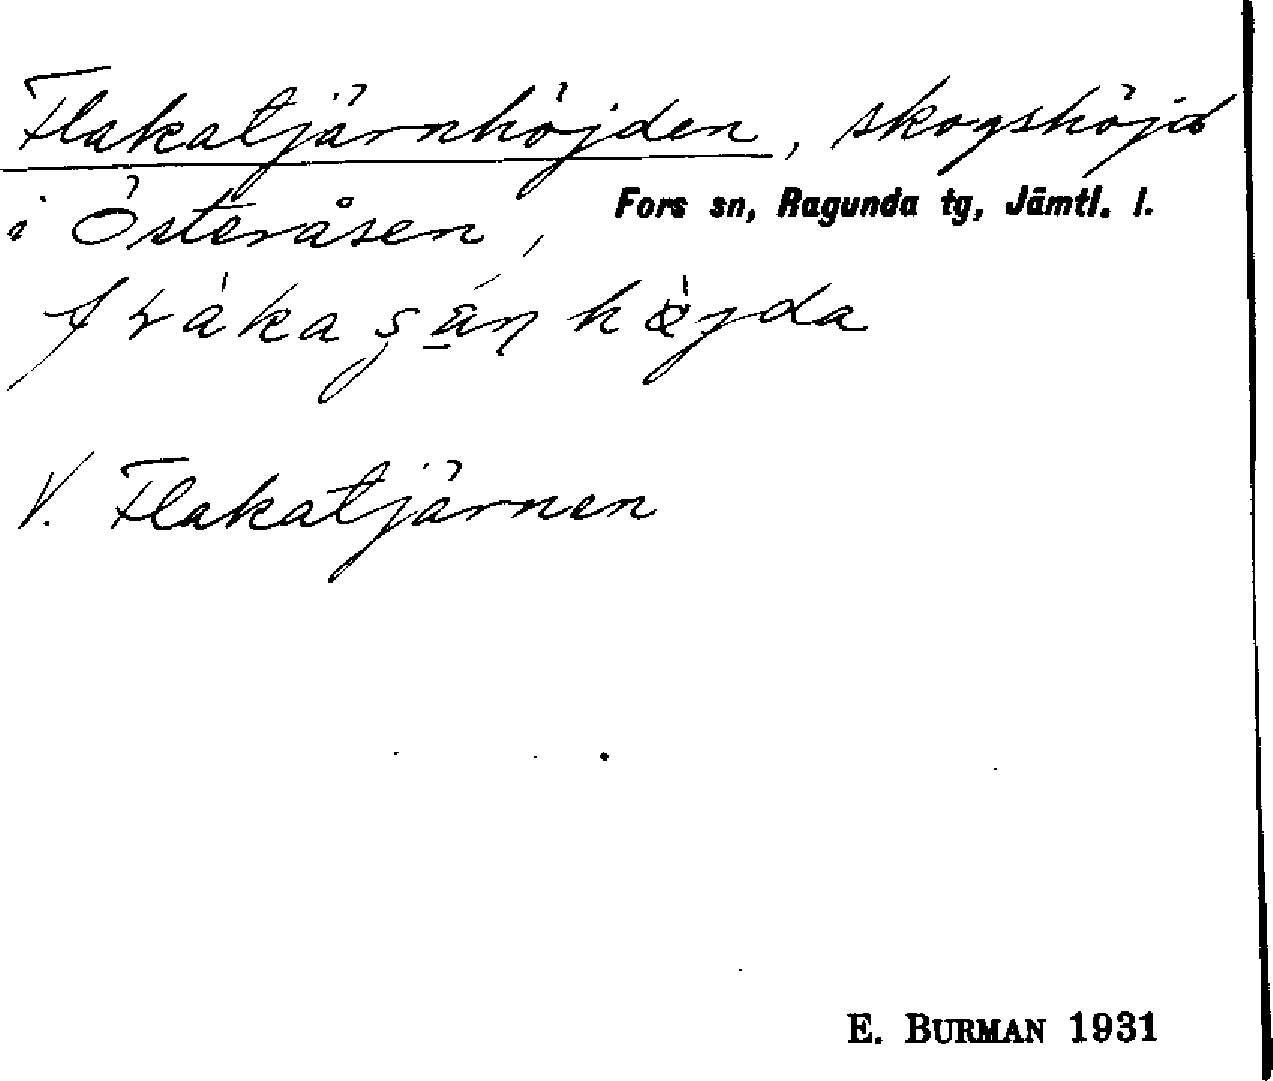 Flakatjärnhöjden, skogshöjd
i Österåsen,
Fors sn, Ragunda tg, Jämtl. l.
V. Flakatjärnen
E. BURMAN 1931